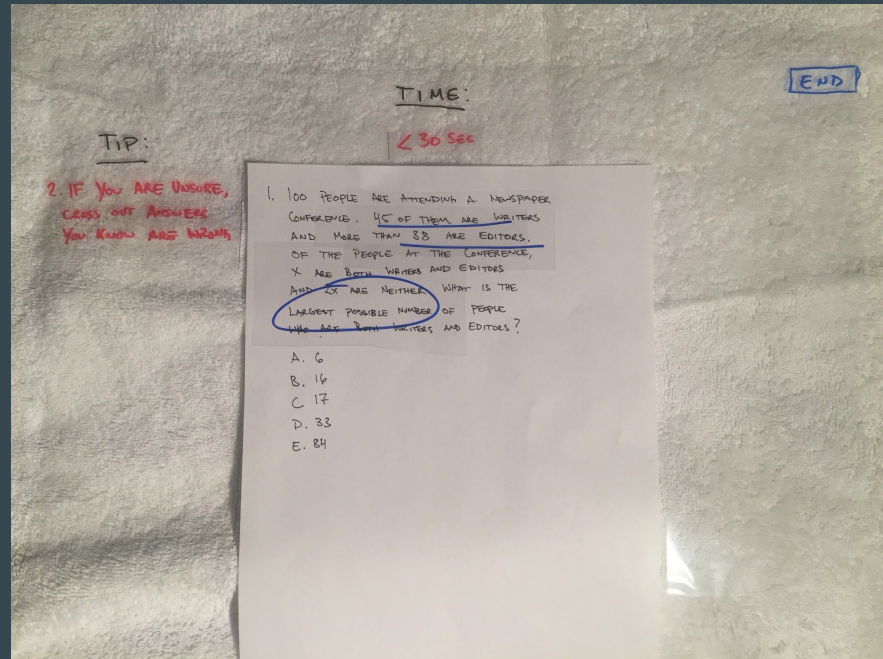 END
TIME:
< 30 SEC
TIP:
2. IF YOU ARE UNSURE,
CROSS OUT ANSWERS
YOU KNOW ARE WRONG
1. 100 PEOPLE ARE ATTENDING A NEWSPAPER
CONFERENCE. 45 OF THEM ARE WRITERS
AND MORE THAN 38 ARE EDITORS.
OF THE PEOPLE AT THE CONFERENCE,
X ARE BOTH WRITERS AND EDITORS
AND 2X ARE NEITHER. WHAT IS THE
LARGEST POSSIBLE NUMBER OF PEOPLE
WHO ARE BOTH WRITERS AND EDITORS?
A. 6
B. 16
C 17
D. 33
E. 84